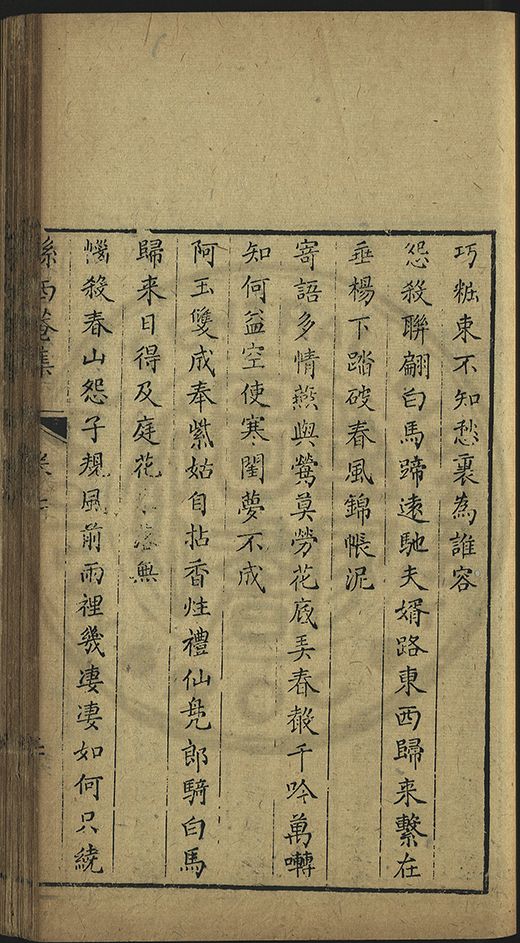 巧粧束不知愁裏為誰容
怨殺聯翩白馬蹄遠馳夫婿路東西歸来繫在
垂楊下踏破春風錦帳泥
寄語多情燕與鶯莫勞花底弄春聲千吟萬囀
知何益空使寒閨夢不成
阿玉雙成奉紫姑自拈香炷禮仙凫郎騎白馬
歸来日得及庭花落無
惱殺春山怨子規風前雨裡幾凄凄如何只繞
孫西菴集